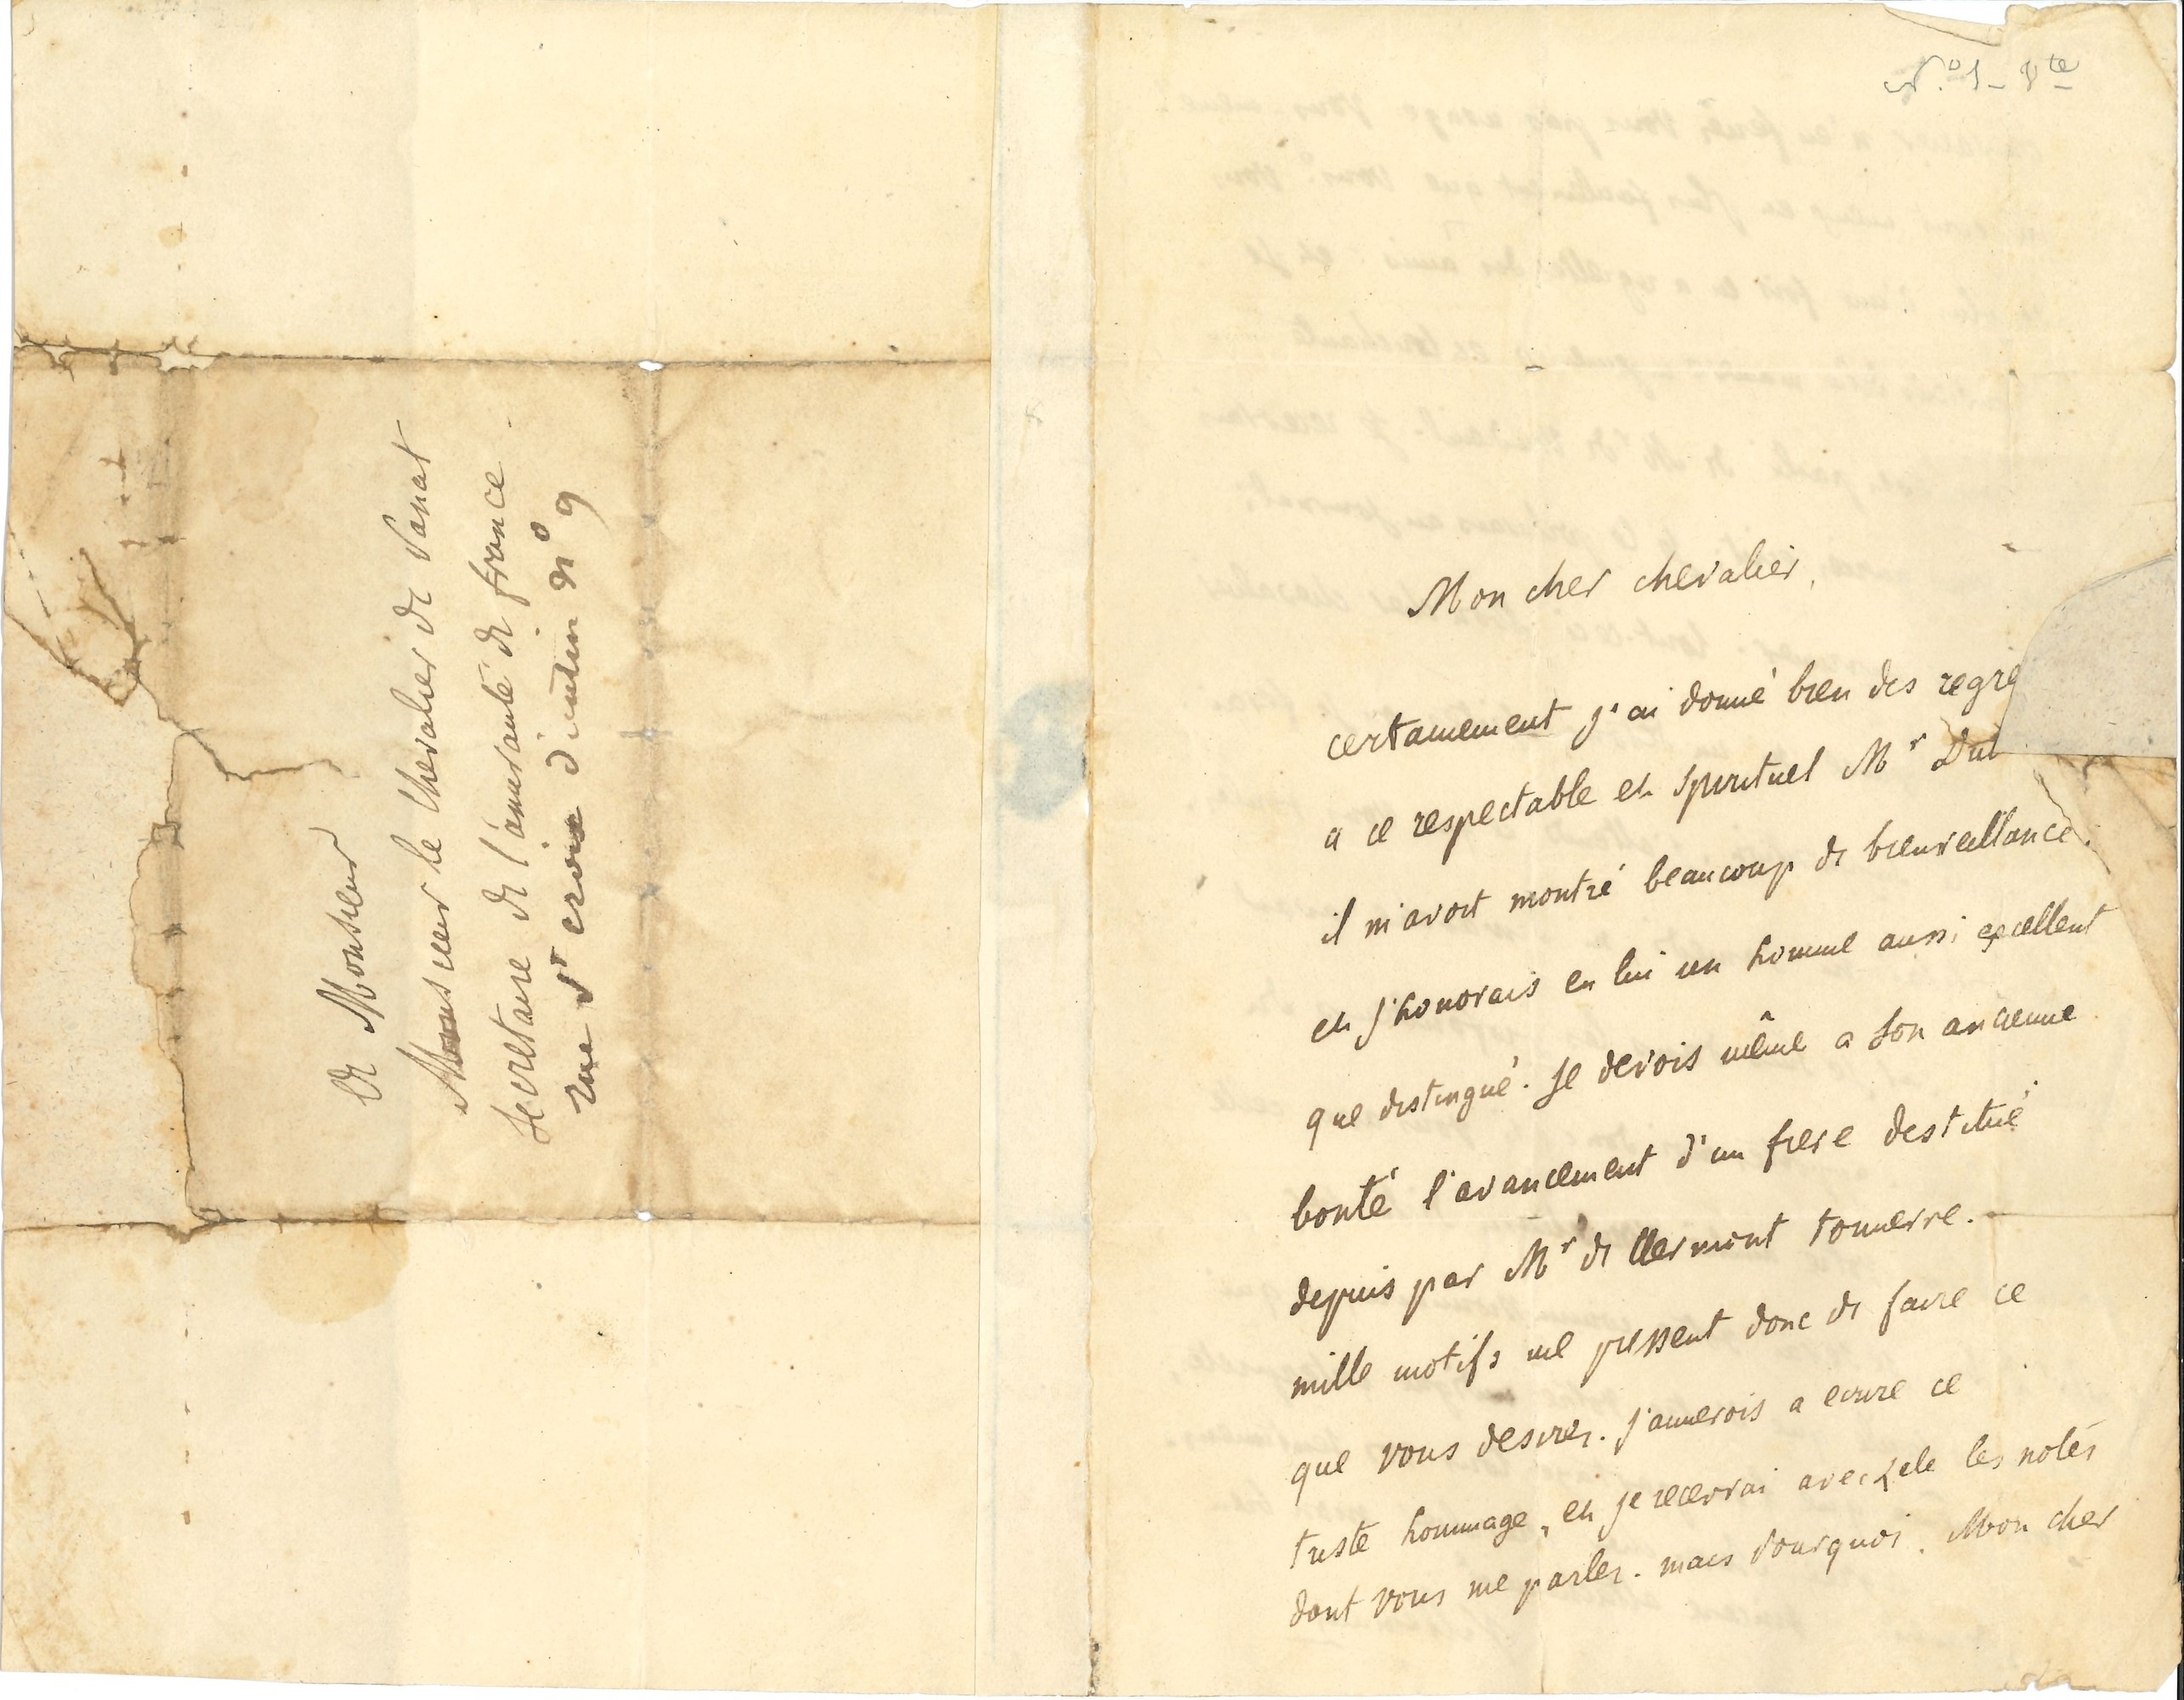 A Monsieur
Monsieur le Chevalier de Panat
Secretaire de l'amirauté de france
rue Ste croix d'antin No 9
No 1 -
Mon cher chevalier,
certainement j'ai donné bien des regre
a ce respectable et spirituel Mr Du
il m'avoit montré beaucoup de bienveillance.
et j'honorais en lui un homme aussi excellent
que distingué. je devois même a son ancienne
bonté l'avancement d'un frere destitué
depuis par Mr de Clermont tonnerre.
mille motifs me pressent donc de faire ce
que vous desirez. j'aimerois a ecrire ce
triste hommage, et je recevrai avec zele les notes
dont vous me parlez. mais pourquoi, Mon cher